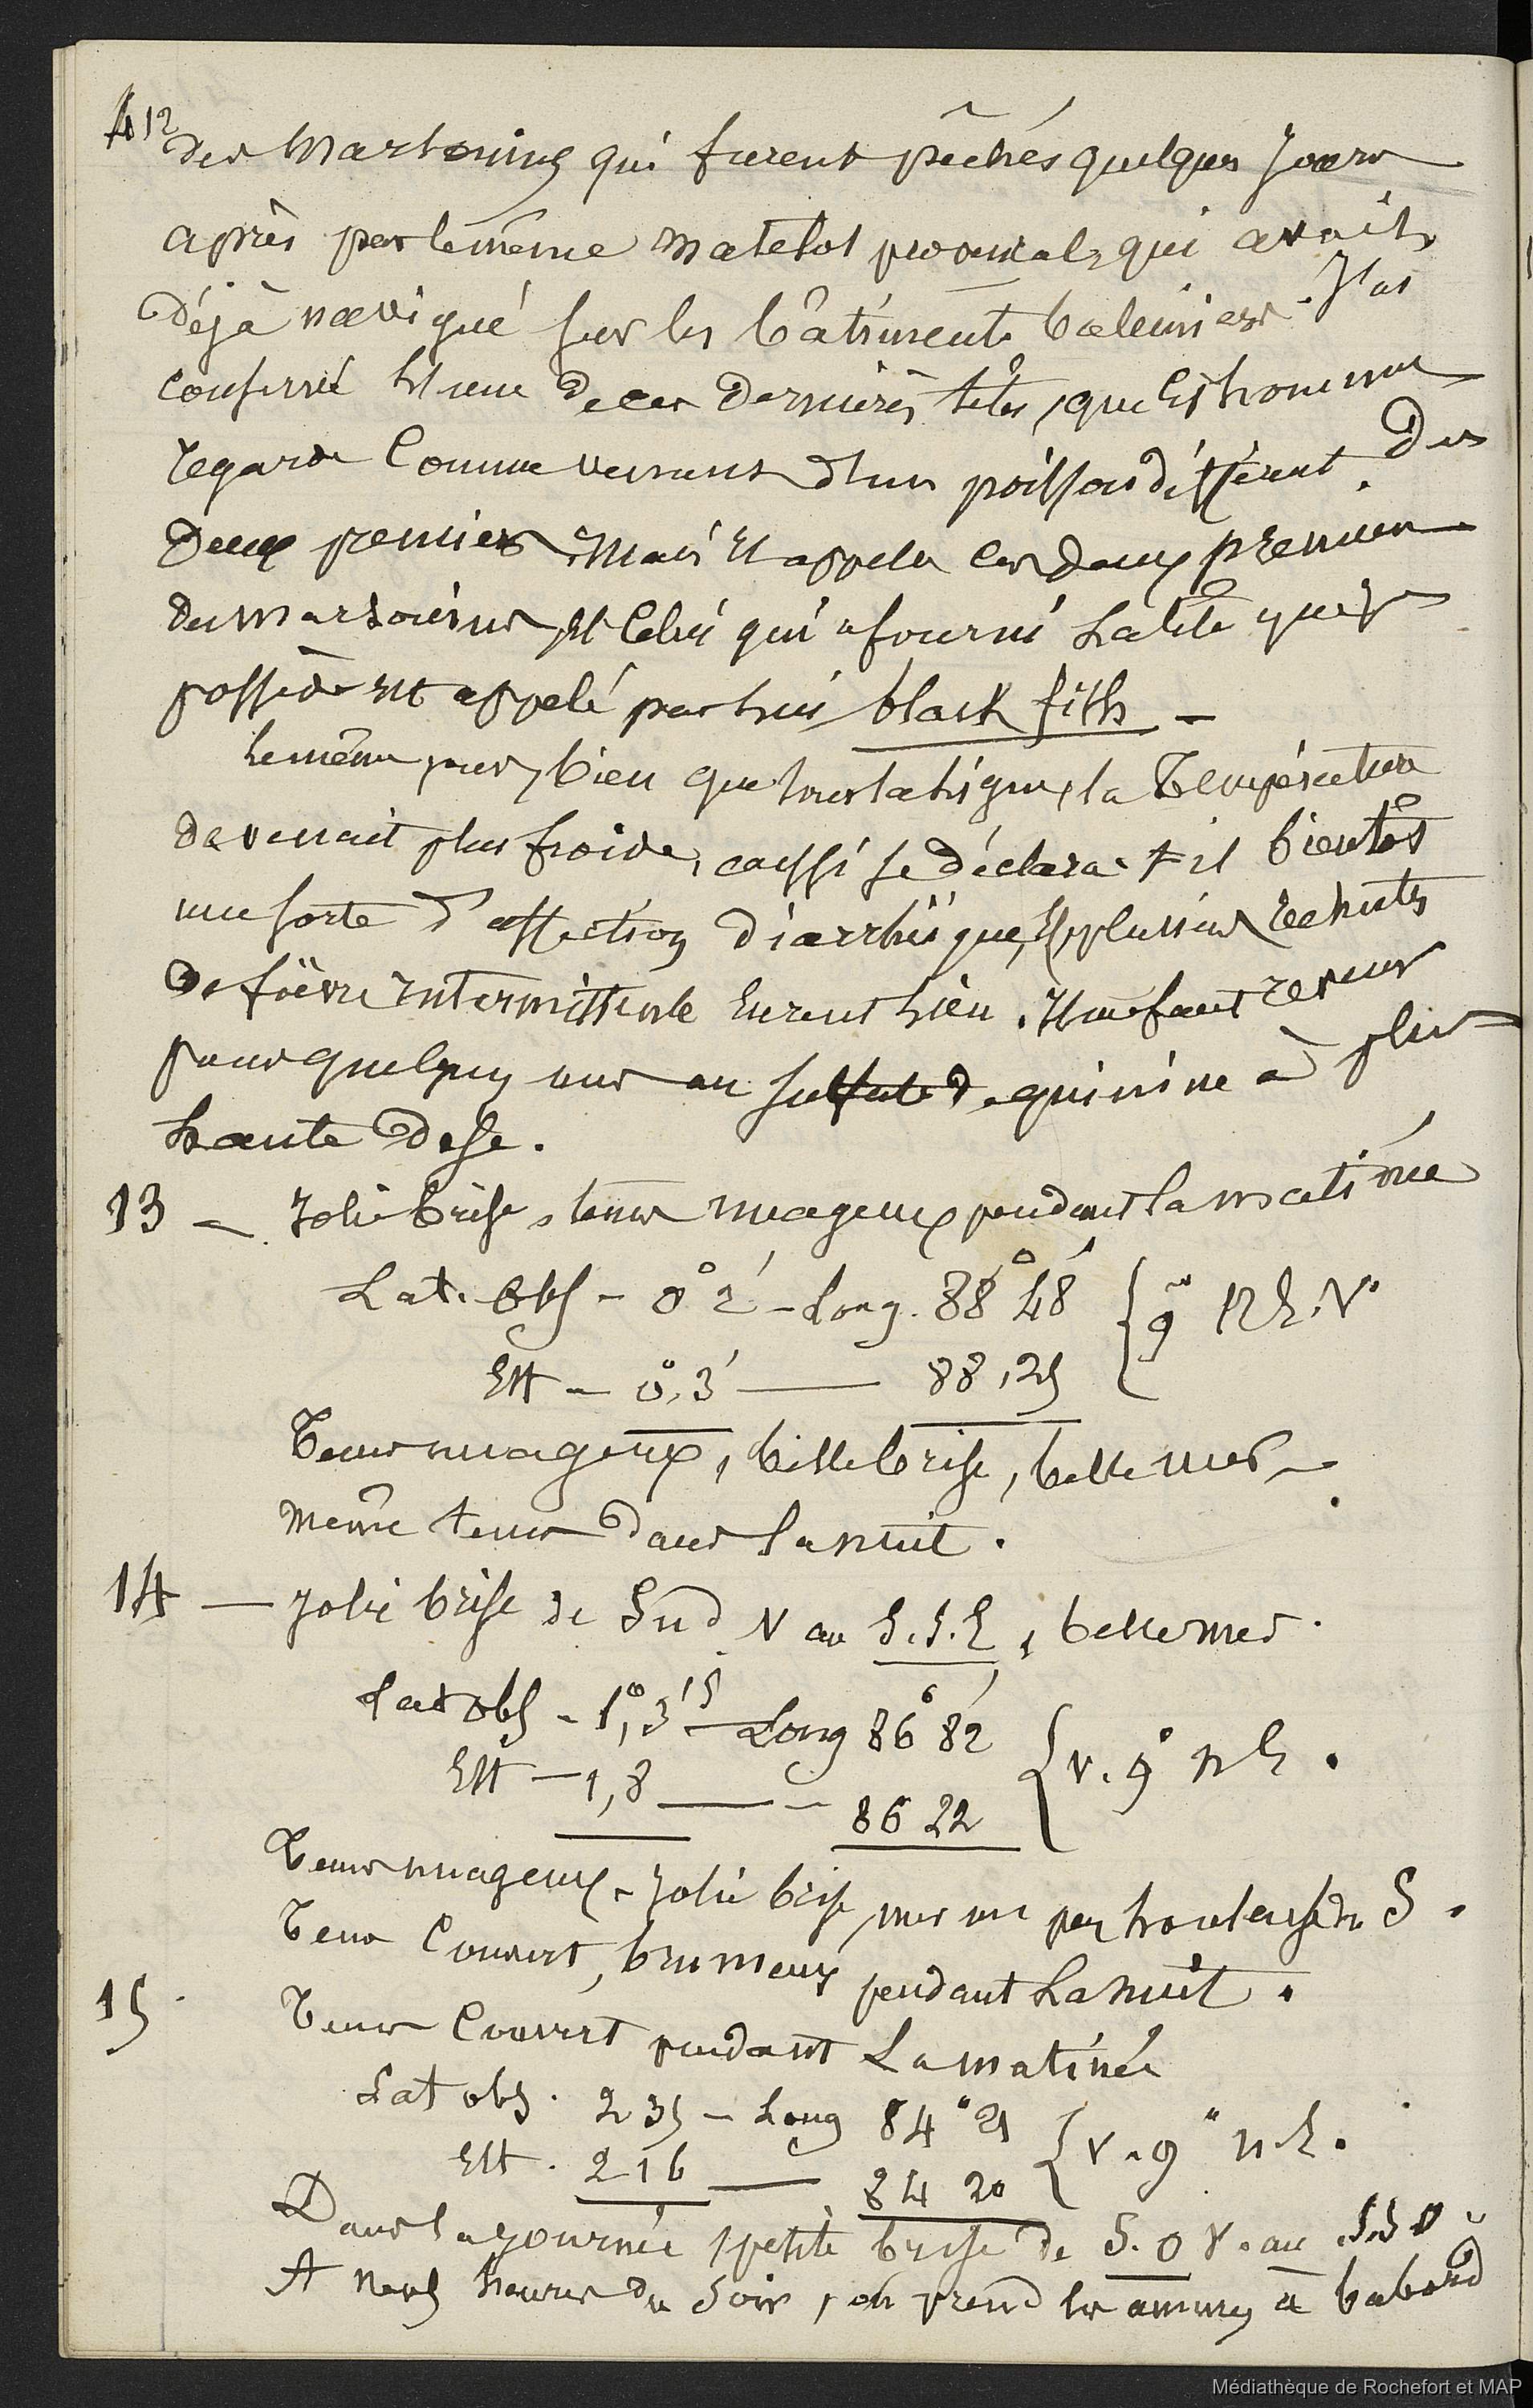 412
des Marsouins qui furent pêchés quelques jours
après par le même matelot provençal, qui avait
déjà navigué sur les bâtiments baleiniers. J'ai
conservé l'une de ces dernières têtes, que cet homme
regarde comme venant d'un poisson différent des
deux premiers. Mais il appelle ces deux premiers
des marsouins, et celui qui a fourni la tête que je
possède est appelé par lui black fish -
Le même jour, bien que sous la ligne, la Température
devenait plus froide, aussi se déclara-t-il bientôt
une sorte d'affection diarrhéique, et plusieurs rechutes
de fièvre intermittente eurent lieu. Il me faut revenir
pour quelques uns au sulfate de quinine à plus
haute dose.
13 - Jolie brise, tems nuageux pendant la matinée
Lat. obs - 0° 2' - Long. 88° 48' { 9° N E. V.
Est - 0°,3' — 88,25
Tems nuageux, belle brise, belle mer -
même tems dans la nuit.
14 — Jolie brise de Sud V au S.S.E, belle mer.
Lat obs - 1°,3'5 — Long 86° 82' { V. 9° N E.
Est — 1,8 — 86 22
Tems nuageux - Jolie brise, mer un peu houleuse du S.
Tems couvert, brumeux pendant la nuit.
15 Tems couvert pendant la matinée
Lat obs. 2 35 - Long 84° 21 { V. 9° N.E.
Est. 2 16 — 84 20
Dans la journée, petite brise de S.O V. au S.S.O.
A neuf heures du soir, on prend les amures à babord
Médiathèque de Rochefort et MAP